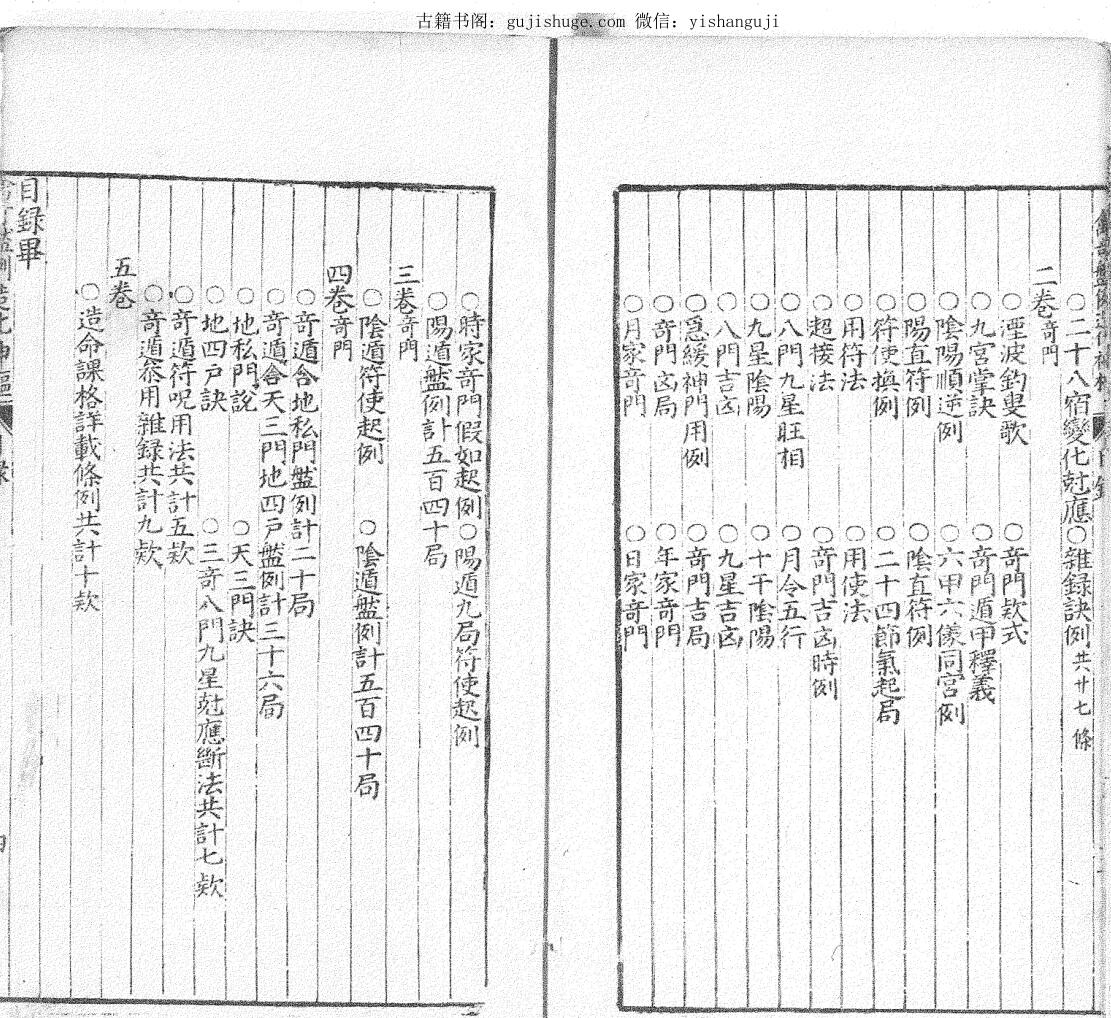 古籍书阁：gujishuge.com 微信：yishanguji
○二十八宿變化尅應○雜錄訣例共廿七條
二卷奇門
○煙波釣叟歌 ○奇門欵式
○九宮掌訣 ○奇門遁甲釋義
○陰陽順逆例 ○六甲六儀同宮例
○陽直符例 ○陰直符例
○符使換例 ○二十四節氣起局
○用符法 ○用使法
○超接法 ○奇門吉凶時例
○八門九星旺相 ○月令五行
○九星陰陽 ○十干陰陽
○八門吉凶 ○九星吉凶
○急緩神門用例 ○奇門吉局
○奇門凶局 ○年家奇門
○月家奇門 ○日家奇門
○時家奇門假如起例○陽遁九局符使起例
○陽遁盤例計五百四十局
三卷奇門
○陰遁符使起例 ○陰遁盤例計五百四十局
四卷奇門
○奇遁合地私門盤例計二十局
○奇遁合天三門地四戸盤例計三十六局
○地私門說 ○天三門訣
○地四戸訣 ○三奇八門九星尅應斷法共計七欵
○奇遁符呪用法共計五欵
○奇遁叅用雜録共計九欵
五卷
○造命課格詳載條例共計十欵
目録畢